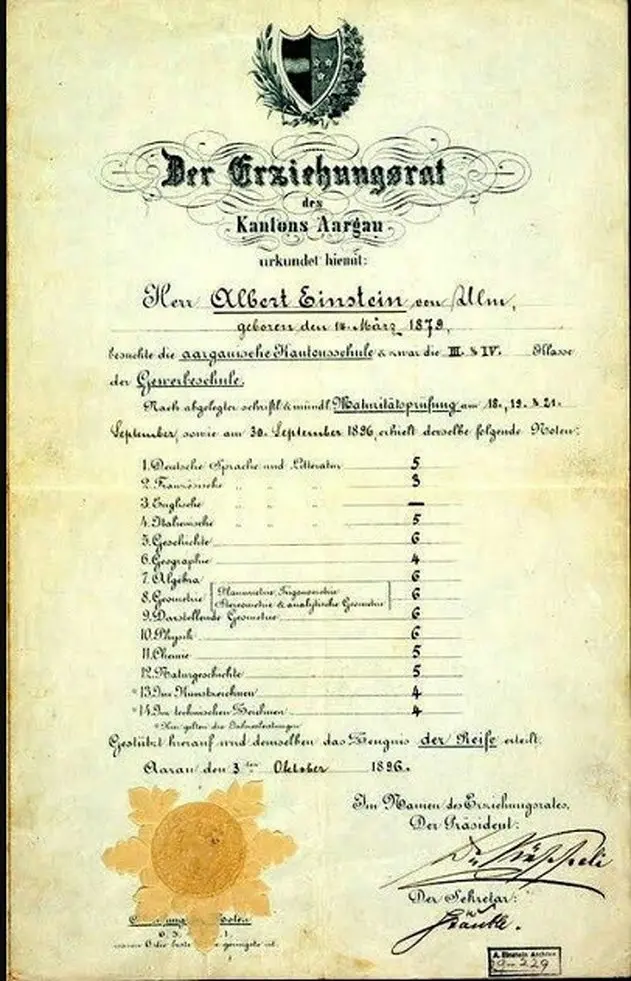 Der Erziehungsrat
des
Kantons Aargau
urkundet hiemit:
Herr Albert Einstein von Ulm,
geboren den 14. März 1879,
besuchte die aargauische Kantonsschule & zwar die III. & IV. Klasse
der Gewerbeschule.
Nach abgelegter schriftl. & mündl. Maturitätsprüfung am 18., 19. & 21.
September, sowie am 30. September 1896, erhielt derselbe folgende Noten:
1. Deutsche Sprache und Litteratur 5
2. Französische " " " 3
3. Englische " " " —
4. Italienische " " " 5
5. Geschichte 6
6. Geographie 4
7. Algebra 6
8. Geometrie [Planimetrie, Trigonometrie 6
Stereometrie & analytische Geometrie]
9. Darstellende Geometrie 6
10. Physik 6
11. Chemie 5
12. Naturgeschichte 5
*13. Im Kunstzeichnen 4
*14. Im technischen Zeichnen 4
*Hier gelten die Jahresleistungen
Gestützt hierauf wird demselben das Zeugnis der Reife erteilt.
Aarau den 3ten Oktober 1896.
Im Namen des Erziehungsrates,
Der Präsident:
Der Sekretär:
Noten
6. 5. 1.
ist.
A. Einstein Archive
29-229